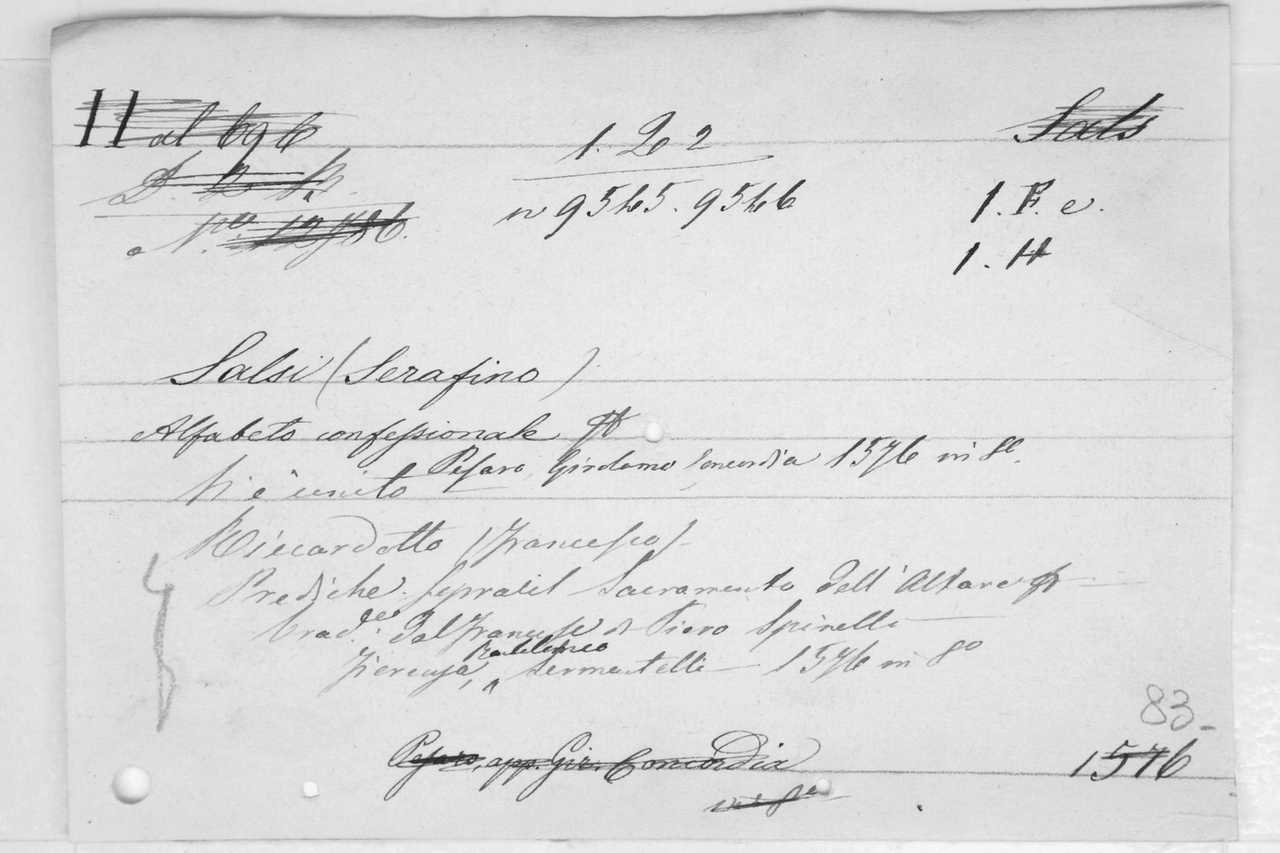 11 al 696
1. L 2
Sals
D. B. R.
n 9545. 9546
1. F. e.
N.ro 12986.
1. H
Salsi (Serafino)
Alfabeto confessionale
Pesaro, Girolamo Concordia 1576 in 8o.
Vi è unito
Riccardotto (Francesco)
Prediche sopra il Sacramento dell'Altare
Trad.e dal Francese di Piero Spinelli
Fiorenza, Bartolomeo Sermartelli 1576 in 8o
83-
Pesaro, app. Gir. Concordia
1576
in 8o